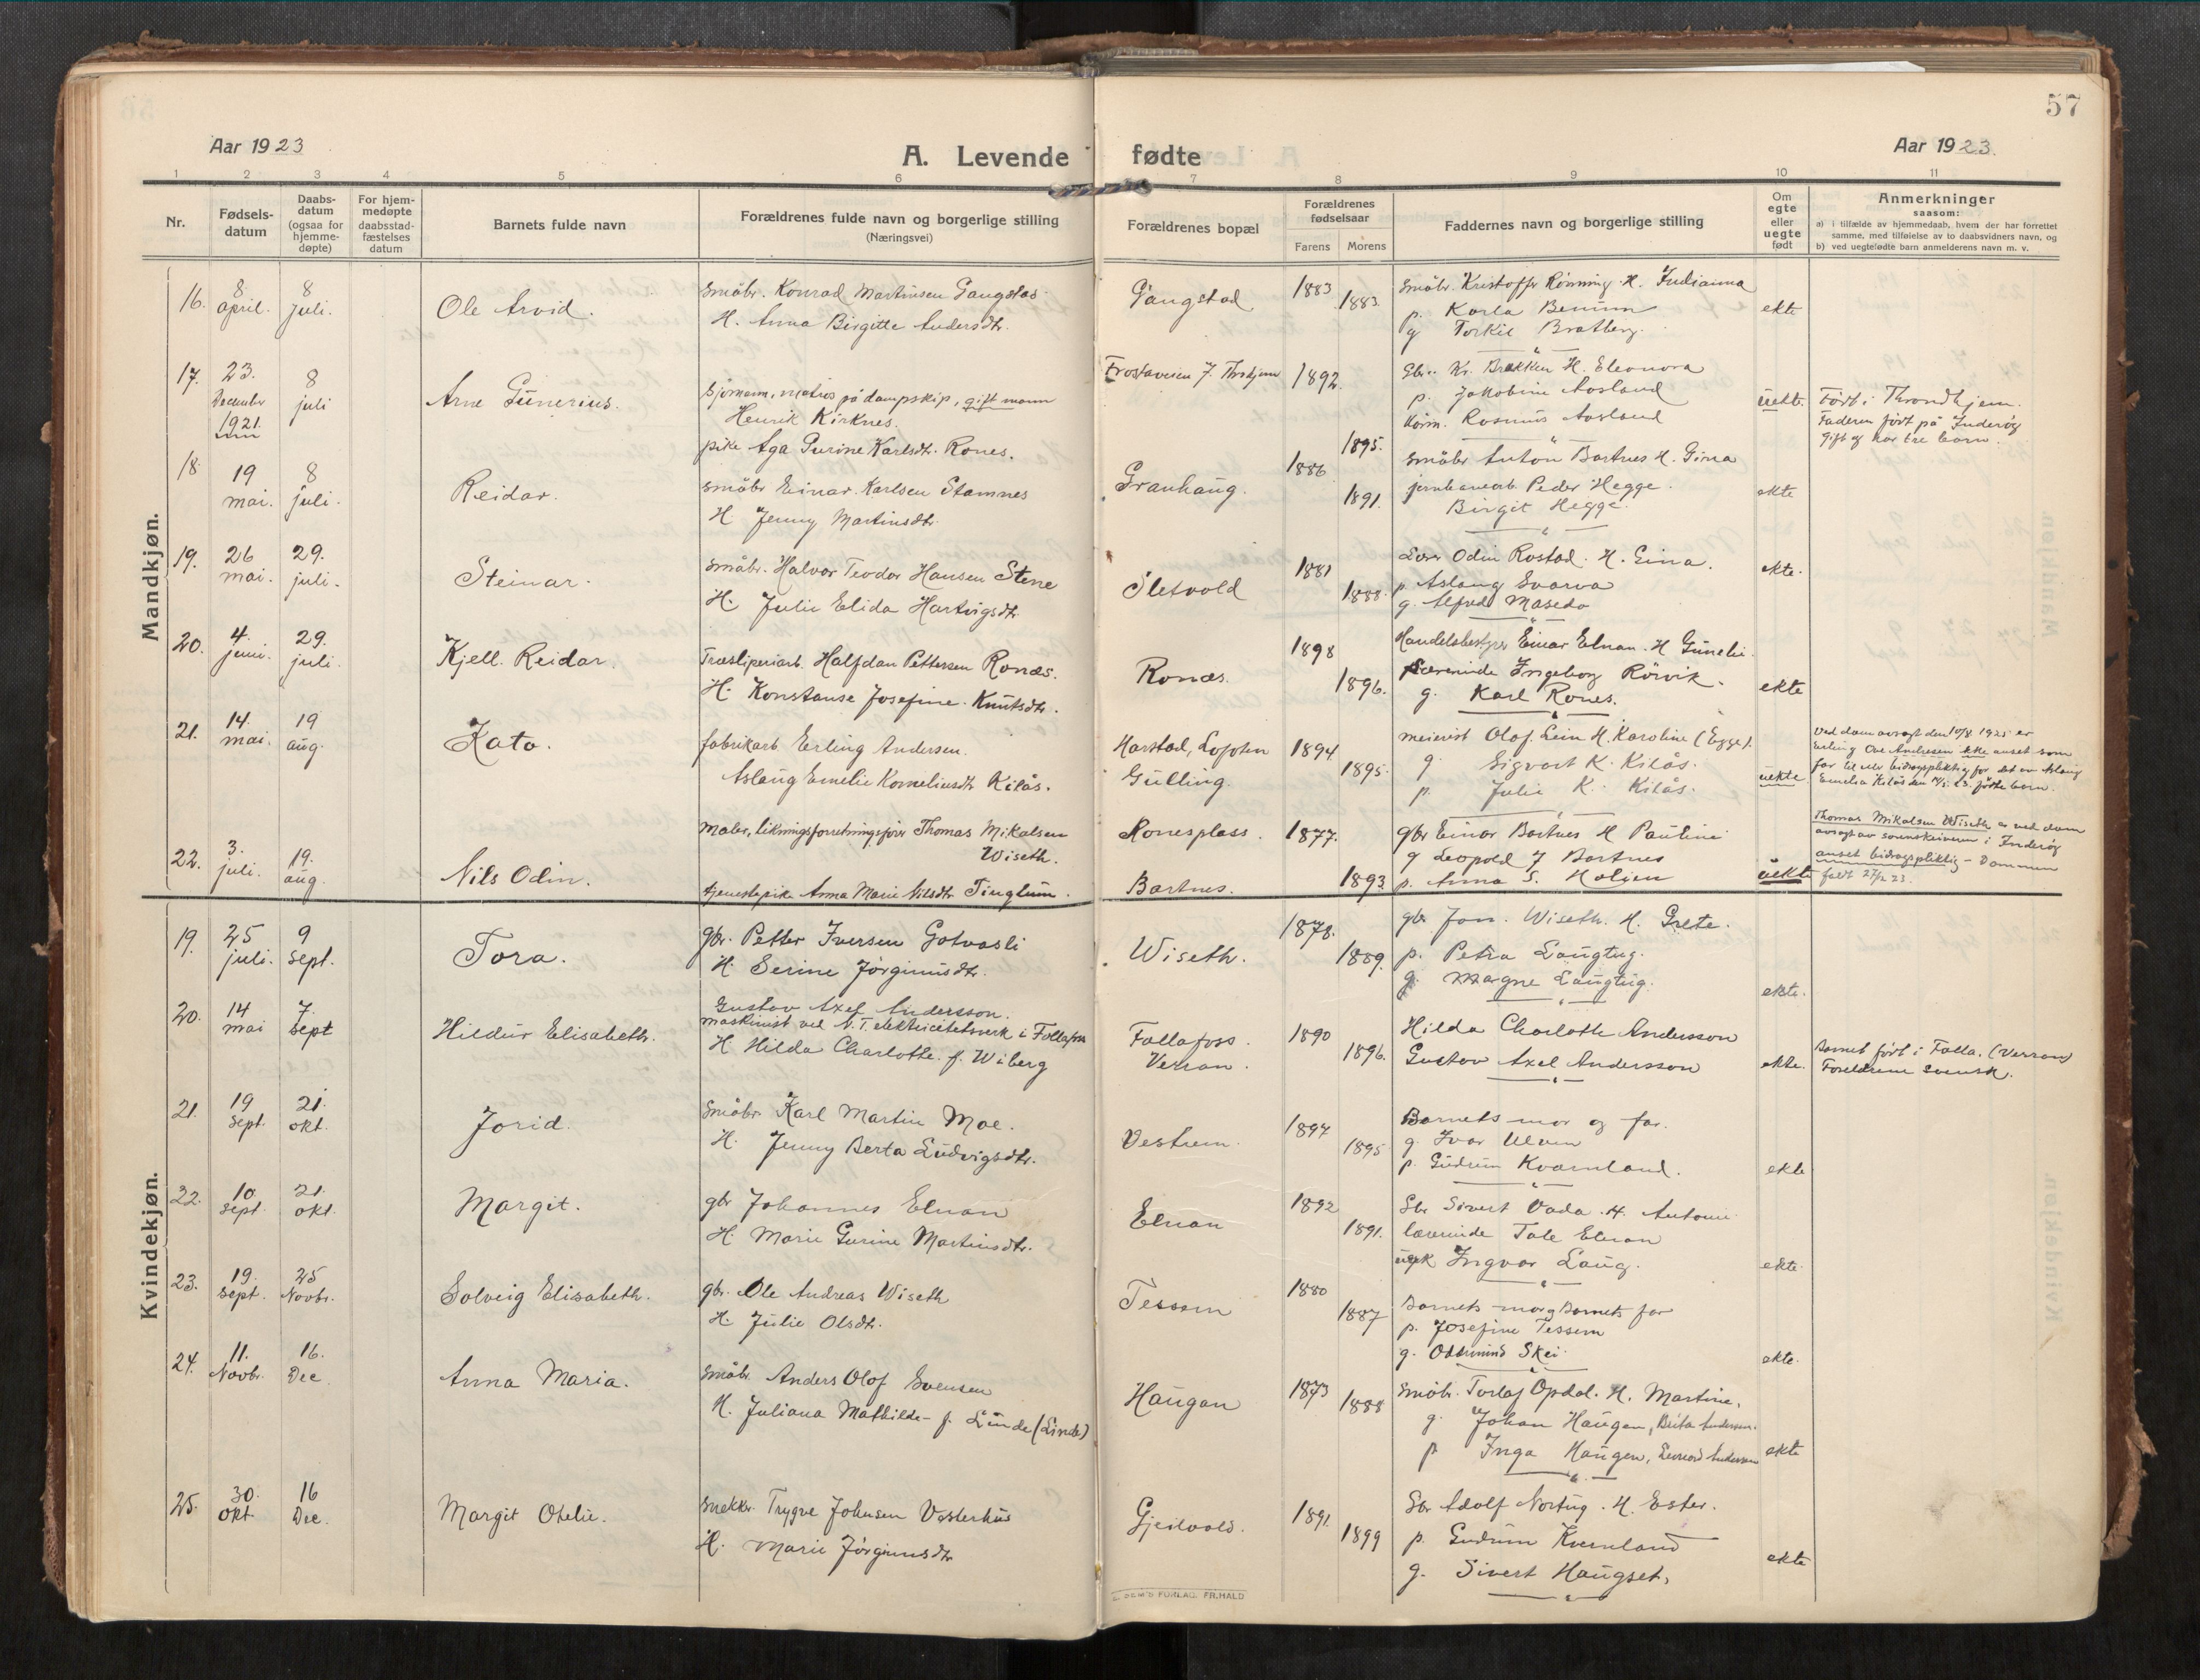 57
Aar 1923
A. Levende fødte
Aar 1923.
1 2 3 4 5 6 7 8 9 10 11
Nr.
Fødsels-
datum
Daabs-
datum
(ogsaa for
hjemme-
døpte)
For hjem-
medøpte
daabsstad-
fæstelses
datum
Barnets fulde navn
Forældrenes fulde navn og borgerlige stilling
(Næringsvei)
Forældrenes bopæl
Forældrenes
fødselsaar
Farens Morens
Faddernes navn og borgerlige stilling
Om
egte
eller
uegte
født
Anmerkninger
saasom:
a) i tilfælde av hjemmedaab, hvem der har forrettet
samme, med tilføielse av to daabsvidners navn, og
b) ved uegtefødte barn anmelderens navn m. v.
Mandkjøn.
16. 8 april. 8 juli. Ole Arvid.
Småbr. Konrad Martinsen Gangstad
H. Anna Birgitte Andersdtr.
Gangstad 1883 1883.
Småbr. Kristoffer Rönning. H. Indianna
p. Karla Benum
g Torkil Bratberg.
ekte
17. 23. December 1921. 8 juli Arne Gunerius.
Sjömann, matros på dampskip, gift mann
Henrik Kirknes.
pike Aga Gurine Karlsdtr. Rones.
Frostaveien 7. Throhjem 1892. 1895.
Gbr. Kr. Brækken H. Eleonora
p. Jakobine Aasland
Rasmus Aasland
uekte.
Födt i Throndhjem.
Faderen födt på Inderöy
Gift og har tre barn.
18. 19 mai. 8 juli. Reidar.
småbr Einar Karlsen Stamnes
H. Jenny Martinsdtr.
Granhaug. 1886 1891.
Småbr Anton Bartnes H. Gina
jernbanearb. Peder Hegge.
Birgit Hegge.
ekte
19. 26 mai. 29. juli. Steinar.
småbr. Halvor Teodor Hansen Stene
H. Julie Elida Hartvigsdtr.
Sletvold 1881 1888.
Lærer Odin Rostad. H. Gina.
p. Aslaug Svarva
g. Alfred Masedo
ekte.
20. 4. juni. 29. juli. Kjell Reidar.
Træsliperiarb. Halfdan Pettersen Ronæs.
H. Konstanse Josefine Knutsdtr.
Ronæs. 1898 1896.
Handelsbestyrer Einar Elnan. H Gunelie.
Lærerinde Ingeborg Rörvik.
g. Karl Rones.
ekte
21. 14. mai. 19 aug. Kato.
fabrikarb. Erling Andersen.
Aslaug Emelie Korneliusdtr Kilås.
Harstad, Lofoten
Gulling. 1894 1895.
meierist Olaf Lein H. Karoline (Egge).
g. Sigvart K. Kilås.
p. Julie K. Kilås.
uekte
Ved dom avsagt den 10/8 1925 er
Erling Ove Andresen ikke anset som
far til eller bidragspliktig for det av Aslaug
Emelia Kilås den 14/5. 23. födte barn.
22. 3. juli. 19. aug. Nils Odin.
Maler, likningsforretningsförer Thomas Mikalsen
Wiseth.
tjenestepike Anna Marie Nilsdtr Tinglum.
Ronesplass. 1877.
Bartnes. 1893
gbr Einar Bartnes H Pauline
g Leopold J Bartnes
p. Anna S. Holien
uekte
Thomas Mikalsen Wiseth er ved dom
avsagt av sorenskriveren i Inderöy
anset bidragspliktig – Dommen
faldt 27/2 23.
Kvindekjøn.
19. 25 juli. 9 sept. Tora.
Gbr. Petter Iversen Gotvasli
H. Serine Jörginusdtr.
Wiseth. 1878. 1889.
gbr Jon. Wiseth. H. Grete.
p. Petra Langtug.
g. Magne Langtug.
ekte.
20. 14 mai 7. sept Hildur Elisabeth.
Gustav Axel Andersson.
maskinist ved N.T. elektricitetsverk i Follafoss
H. Hilda Charlotte. f. Wiberg
Follafoss.
Verran. 1890 1896.
Hilda Charlotte Andersson
Gustav Axel Andersson
ekte.
Barnet födt i Folla. (Verran)
Foreldrene svensk.
21. 19 sept. 21. okt. Jorid.
Småbr. Karl Martin Moe.
H. Jenny Berta Ludvigsdtr.
Vestrum. 1897 1895
Barnets mor og far.
g. Ivar Ulven
p. Gudrun Kvarnland.
ekte
22. 10. sept. 21. okt. Margit.
gbr Johannes Elnan
H. Marie Gurine Martinsdtr.
Elnan 1892 1891.
Gbr Sivert Vada. H. Antonie
lærerinde Tale Elnan
ugk Ingvar Laug.
ekte.
23. 19. sept. 25 Novbr. Solveig Elisabeth.
gbr. Ole Andreas Wiseth
H. Julie Olsdtr.
Tessem 1880 1887
Barnets mor og Barnets far
p. Josefine Tessem
g. Oddmund Skei.
ekte.
24. 11. Novbr. 16. Dec. Anna Maria.
Småbr. Anders Olof Svensen
H. Juliana Mathilde f. Lunde (Linde)
Haugan 1873 1888
Småbr. Torlaf Opdal. H. Martine.
g. Johan Haugen, Brita Andersen.
p Inga Haugen, Andersen
ekte
25. 30. okt. 16 Dec. Margit Otelie.
Snekker. Trygve Johnsen Vesterhus
H. Marie Jörginusdtr
Gjeilvold. 1891. 1899
Gbr Adolf Nortug. H. Ester.
p. Gudrun Kvernland
g. Sivert Haugset.
ekte
FORLAG. FR.HALD